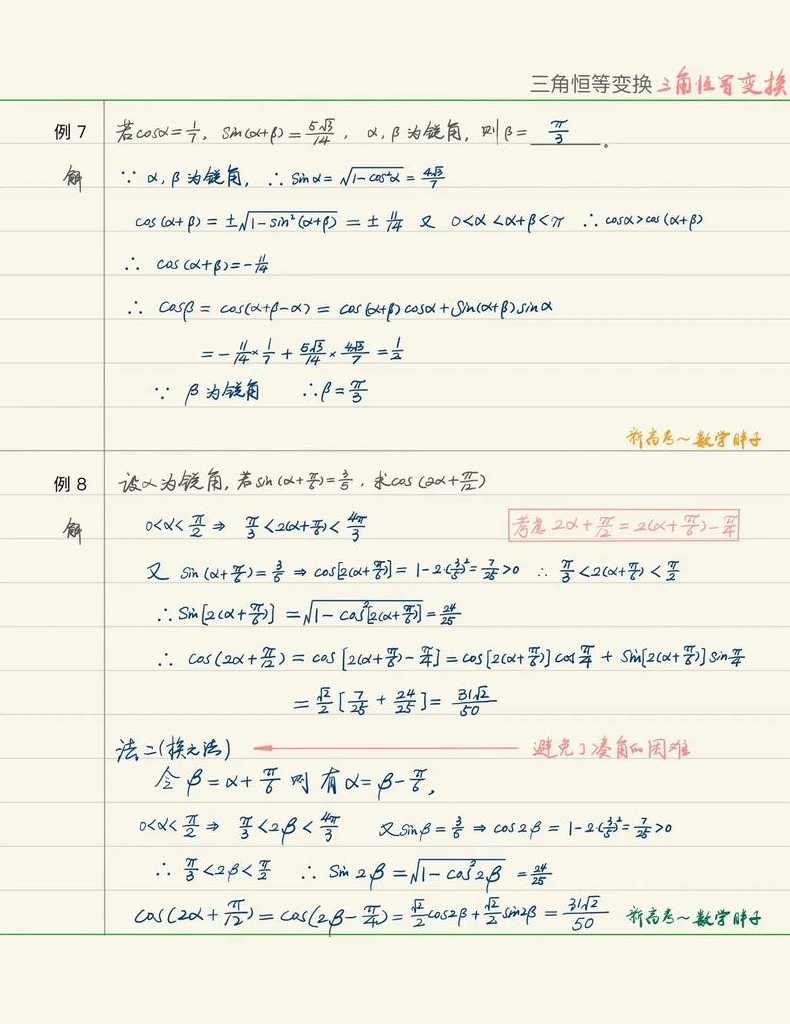 三角恒等变换 三角恒等变换
例 7 若cosα=1/7, Sin(α+β)=5√3/14, α,β为锐角, 则β= π/3 。
解 ∵ α,β为锐角, ∴ Sinα=√(1-cos²α)=4√3/7
cos(α+β)=±√(1-sin²(α+β))=±11/14 又 0<α<α+β<π ∴ cosα>cos(α+β)
∴ cos(α+β)=-11/14
∴ Cosβ=cos(α+β-α)=cos(α+β)cosα+Sin(α+β)sinα
=-11/14×1/7+5√3/14×4√3/7=1/2
∵ β为锐角 ∴β=π/3
新高考~数学胖子
例 8 设α为锐角, 若sin(α+π/6)=3/5, 求cos(2α+π/12)
解 0<α<π/2 ⇒ π/3<2(α+π/6)<4π/3 考虑 2α+π/12=2(α+π/6)-π/4
又 Sin(α+π/6)=3/5 ⇒ cos[2(α+π/6)]=1-2·(3/5)²=7/25>0 ∴ π/3<2(α+π/6)<π/2
∴ Sin[2(α+π/6)]=√(1-cos²[2(α+π/6)])=24/25
∴ cos(2α+π/12)=cos[2(α+π/6)-π/4]=cos[2(α+π/6)]cosπ/4+Sin[2(α+π/6)]sinπ/4
=√2/2[7/25+24/25]=31√2/50
法二(换元法) 避免了凑角的困难
令 β=α+π/6 则有α=β-π/6,
0<α<π/2 ⇒ π/3<2β<4π/3 又sinβ=3/5 ⇒ cos2β=1-2·(3/5)²=7/25>0
∴ π/3<2β<π/2 ∴ Sin2β=√(1-cos²2β)=24/25
Cos(2α+π/12)=cos(2β-π/4)=√2/2cos2β+√2/2sin2β=31√2/50 新高考~数学胖子